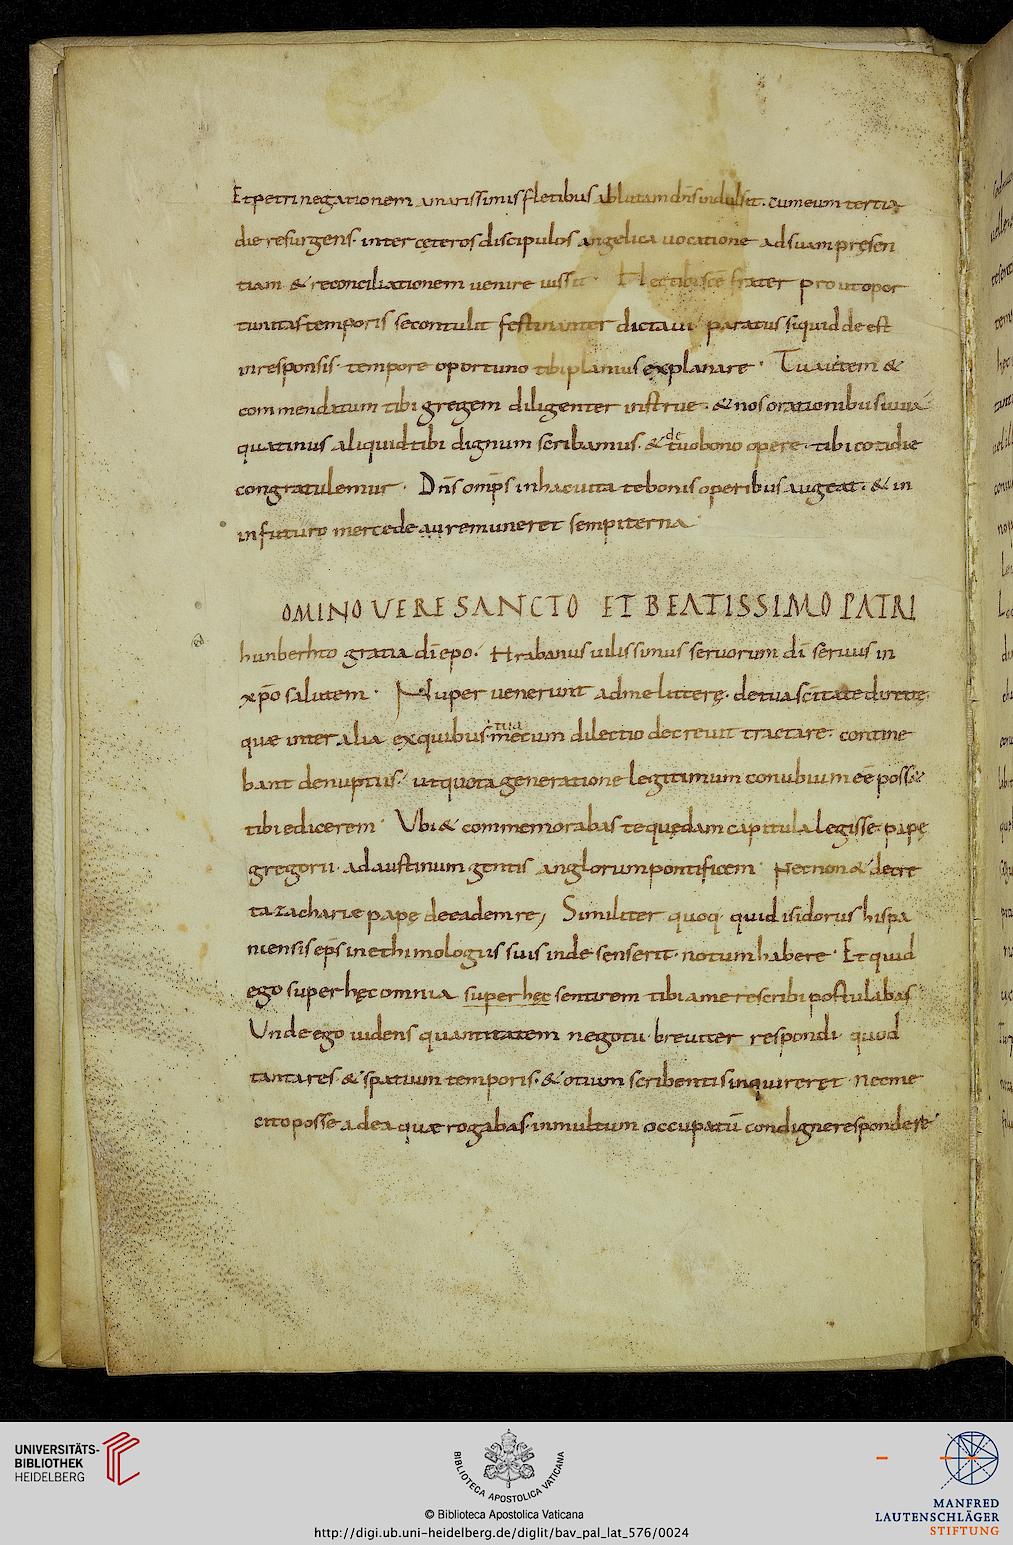 Et petri negationem amarissimis fletibus ablutam dn̄s indulsit. cum eum tertia
die resurgens. inter cęteros discipulos angelica uocatione ad suam pręsen
tiam & reconciliationem uenire iussit. Hęc tibi sc̄e frater prout opor
tunitas temporis se contulit festinanter dictaui paratus siquid deest
in responsis. tempore oportuno tibi planius explanare. Tu autem &
commendatum tibi gregem diligenter instrue. & nos orationibus iuua
quatinus aliquid tibi dignum scribamus. & de tuo bono opere. tibi cotidie
congratulemur. Dn̄s omp̄s in hac uita te bonis operibus augeat. & in
in futuro mercede remuneret sempiterna
OMINO VERE SANCTO ET BEATISSIMO PATRI
hunberhto gratia dī ep̄o. Hrabanus uilissimus seruorum dī seruus in
xp̄o salutem. Nuper uenerunt ad me litterę. de tua sc̄itate directę
quæ inter alia ex quibus tua mecum dilectio decreuit tractare. contine
bant de nuptiis. ut quota generatione legitimum conubium eē possit.
tibi edicerem. Vbi & commemorabas te quędam capitula legisse. papę
gregorii. ad austinum gentis anglorum pontificem. Necnon & decre
ta zachariæ papę de eadem re, Similiter quoq. quid isidorus hispa
niensis ep̄s in ethimologiis suis inde senserit. notum habere. Et quid
ego super hęc omnia super hęc sentirem tibi a me rescribi postulabas
Unde ego uidens quantitatem negotii. breuiter respondi. quod
tanta res & spatium temporis. & otium scribentis inquireret. Nec me
cito posse ad ea quæ rogabas. in multum occupatū condigne respondere.
UNIVERSITÄTS-
BIBLIOTHEK
HEIDELBERG
BIBLIOTECA APOSTOLICA VATICANA
© Biblioteca Apostolica Vaticana
http://digi.ub.uni-heidelberg.de/diglit/bav_pal_lat_576/0024
MANFRED
LAUTENSCHLÄGER
STIFTUNG